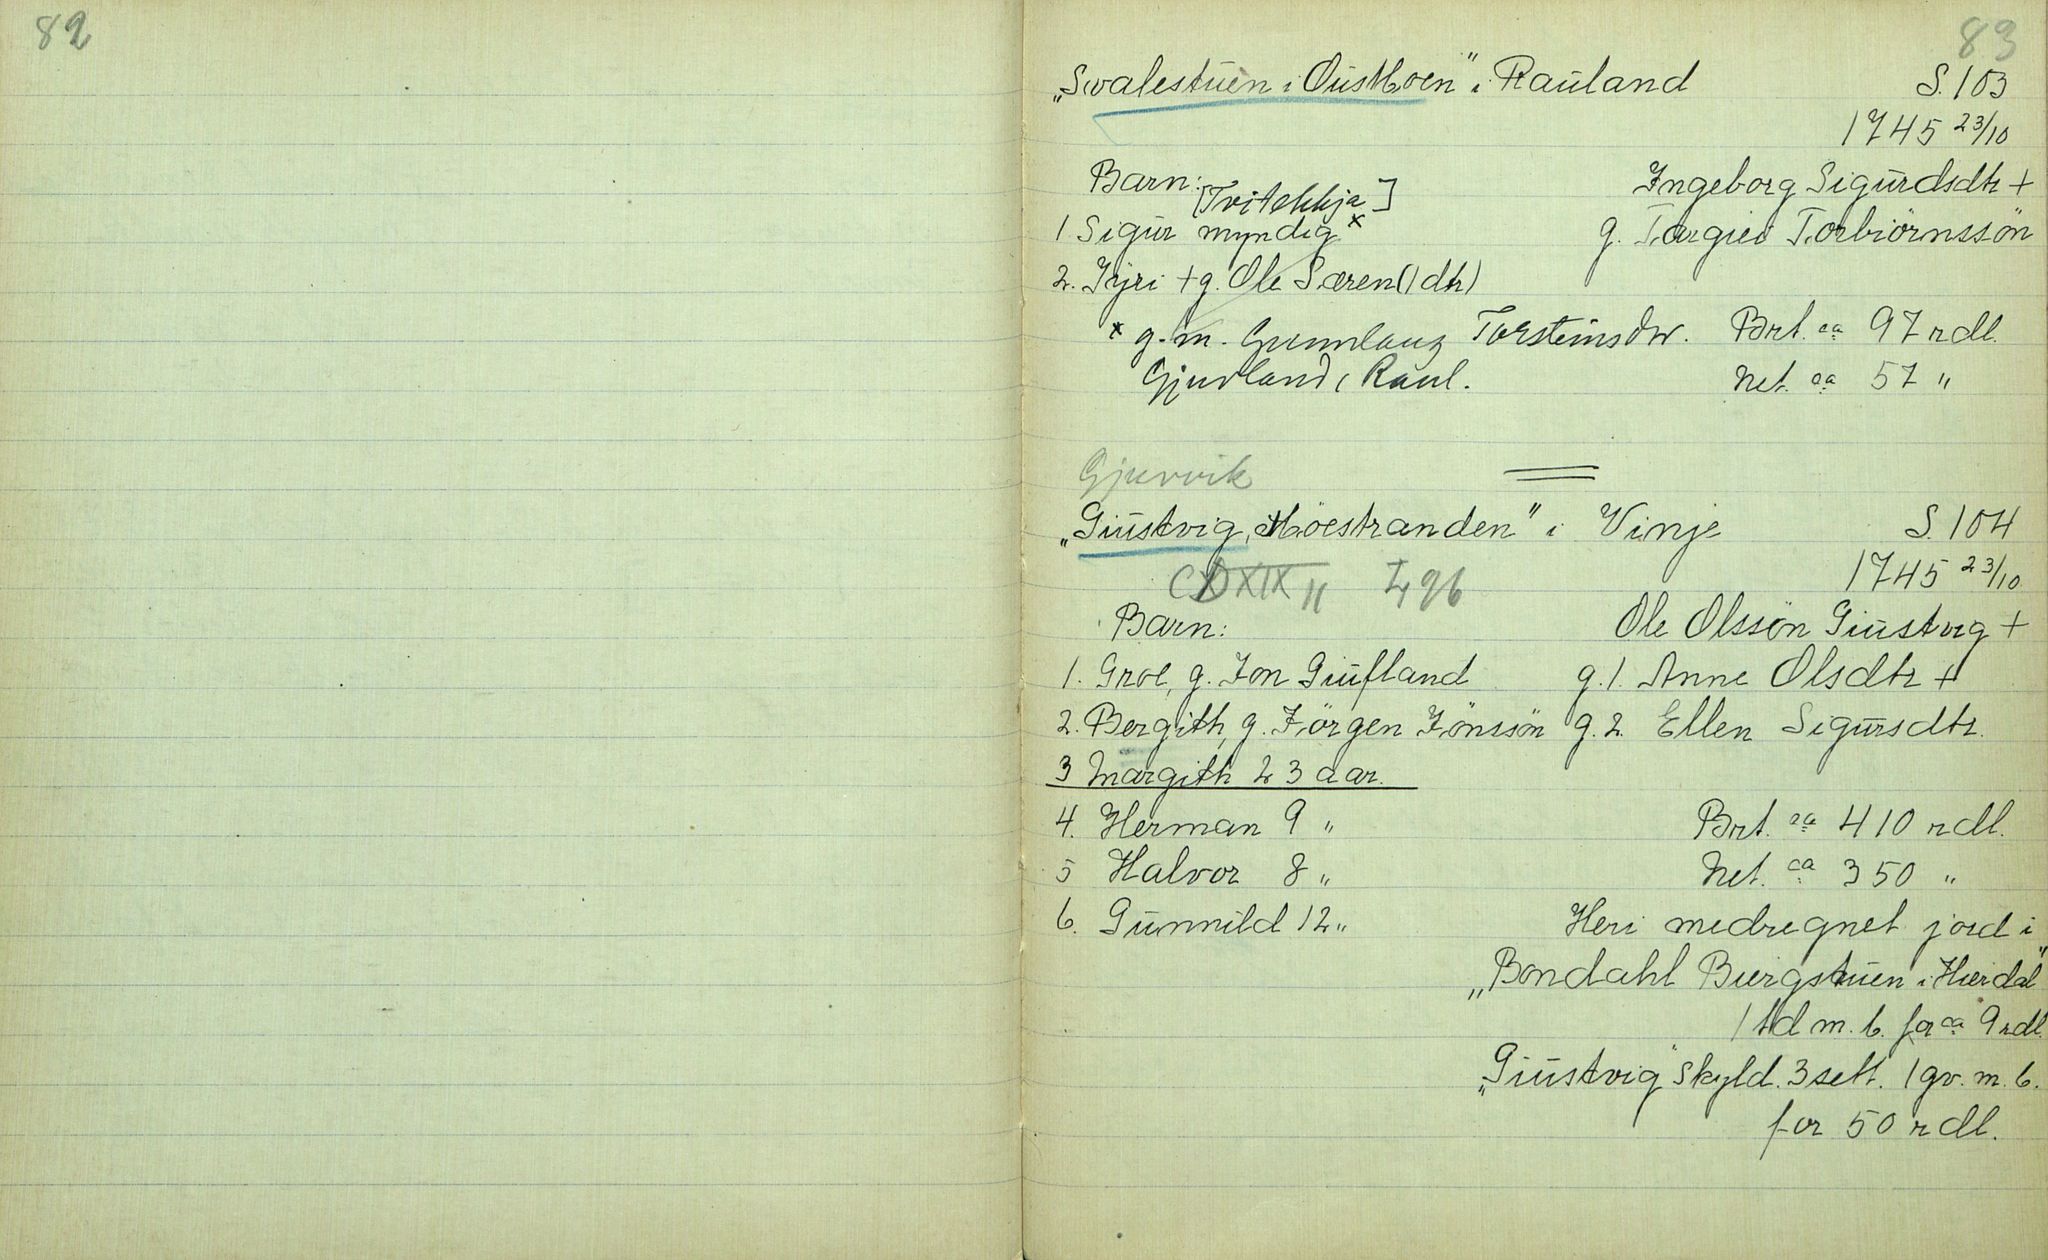 82
83
„Svalestuen i Øustboen" i Rauland S. 103
1745 23/10
Barn: Ingeborg Sigurdsdtr +
[Tvitekkja]
1 Sigur myndig x g. Targiei Torbiörnssön
2. Jyri + g. Ole Særen (1 dtr)
x g. m. Gunnlaug Torsteinsdtr. Brt. ca 97 rdl.
Gjuvland i Raul. Net. ca 57 „
Gjuvvik
„Giustvig, Möestranden" i Vinje S. 104
1745 23/10
XIX II I 96
Barn: Ole Olssön Giustvig +
1. Groe, g. Jon Giufland g. 1. Anne Olsdtr +
2. Bergith, g. Jörgen Jönssön g. 2. Ellen Sigursdtr.
3 Margith 23 aar.
4. Herman 9 „ Brt. ca 410 rdl.
5 Halvor 8 „ Net. ca 350 „
6. Gunnild 12 „ Heri medregnet jord i
„Bondahl Biergstuen i Hierdal"
1 td m. b. for ca 9 rdl.
„Giustvig" skyld. 3 sett. 1 gv. m. b.
for 50 rdl.